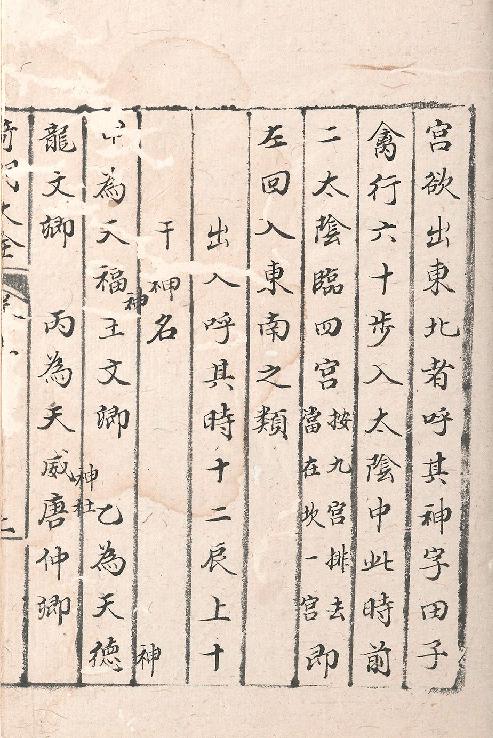 宮欲出東北者呼其神字田子
禽行六十步入太陰中此時前
二太陰臨四宮按九宮排去當在坎一宮即
左回入東南之類
出入呼其時十二辰上十
干神名
甲為天福神王文卿 乙為天德神
龍文卿 丙為天威神唐仲卿
大全